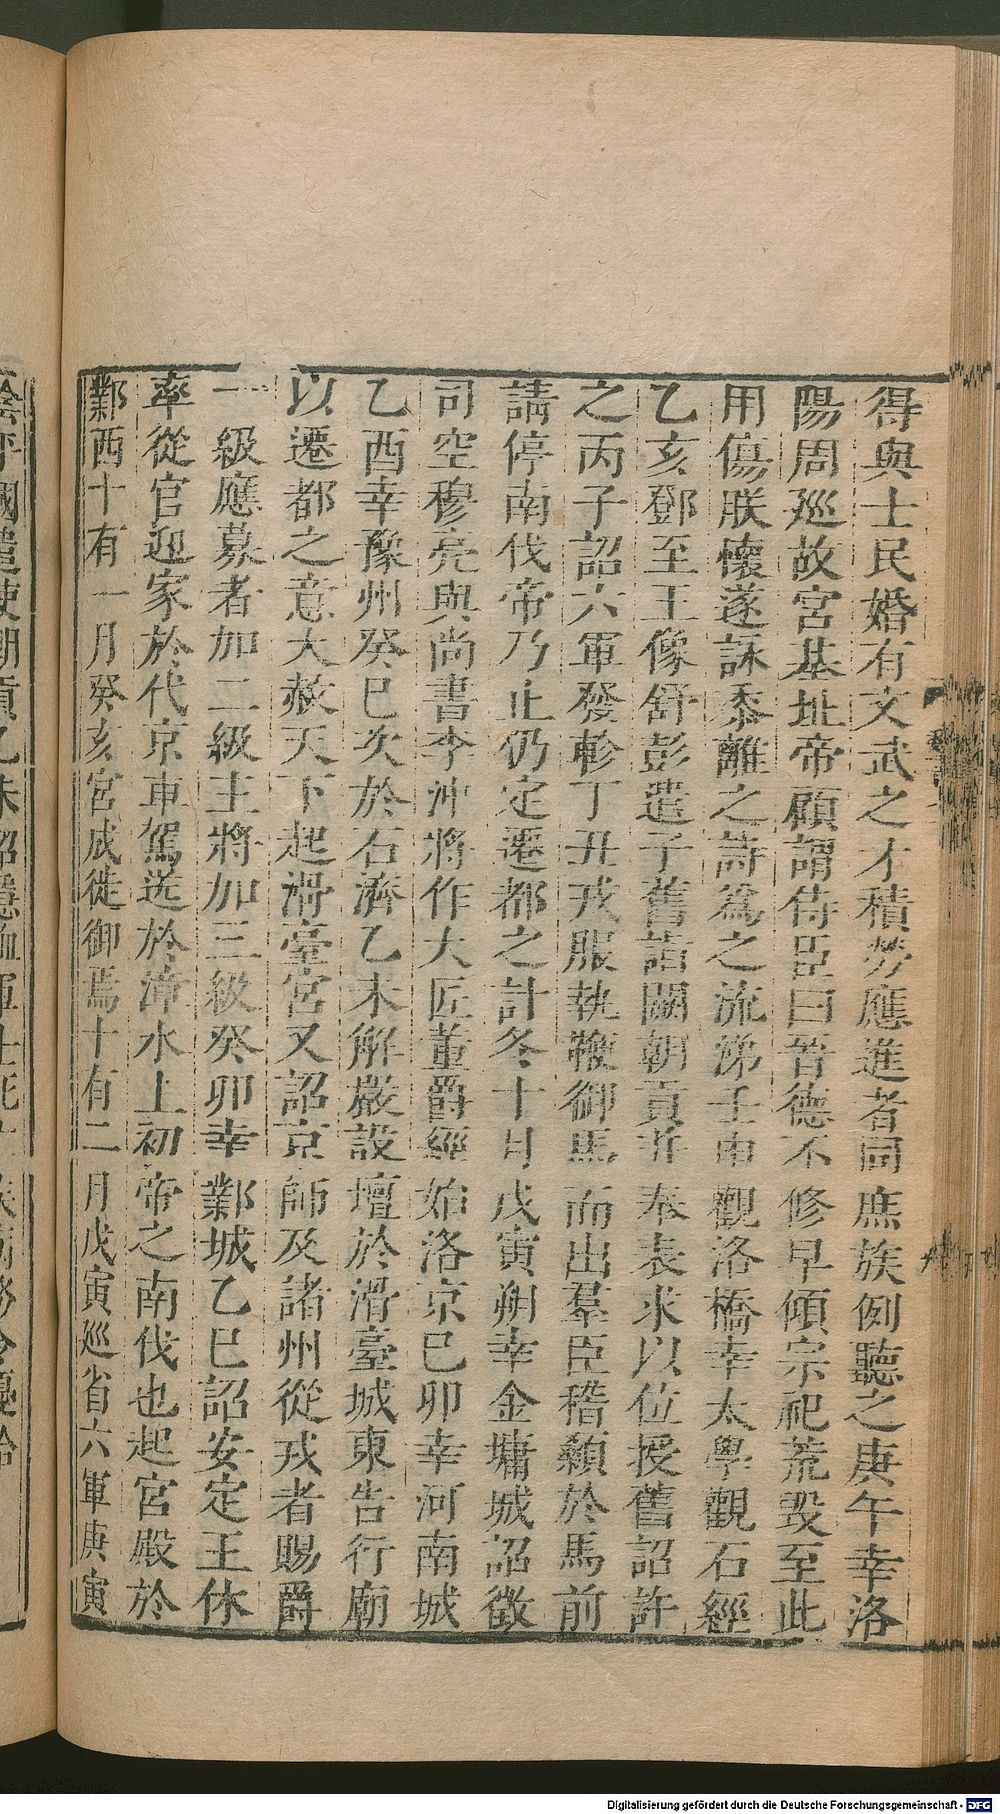 得與士民婚有文武之才積勞應進者同庶族例聽之庚午幸洛
陽周廵故宮基址帝顧謂侍臣曰晉德不修早傾宗祀荒毀至此
用傷朕懷遂詠黍離之詩爲之流涕壬申觀洛橋幸太學觀石經
乙亥鄧至王像舒彭遣子舊詣闕朝貢并奉表求以位授舊詔許
之丙子詔六軍發軫丁丑戎服執鞭御馬而出羣臣稽顙於馬前
請停南伐帝乃止仍定遷都之計冬十月戊寅朔幸金墉城詔徵
司空穆亮與尚書李沖將作大匠董爵經始洛京巳卯幸河南城
乙酉幸豫州癸巳次於石濟乙未解嚴設壇於滑臺城東告行廟
以遷都之意大赦天下起滑臺宮又詔京師及諸州從戎者賜爵
一級應募者加二級主將加三級癸卯幸鄴城乙巳詔安定王休
率從官迎家於代京車駕送於漳水上初帝之南伐也起宮殿於
鄴西十有一月癸亥宮成徙御焉十有二月戊寅廵省六軍庚寅
Digitalisierung gefördert durch die Deutsche Forschungsgemeinschaft - DFG